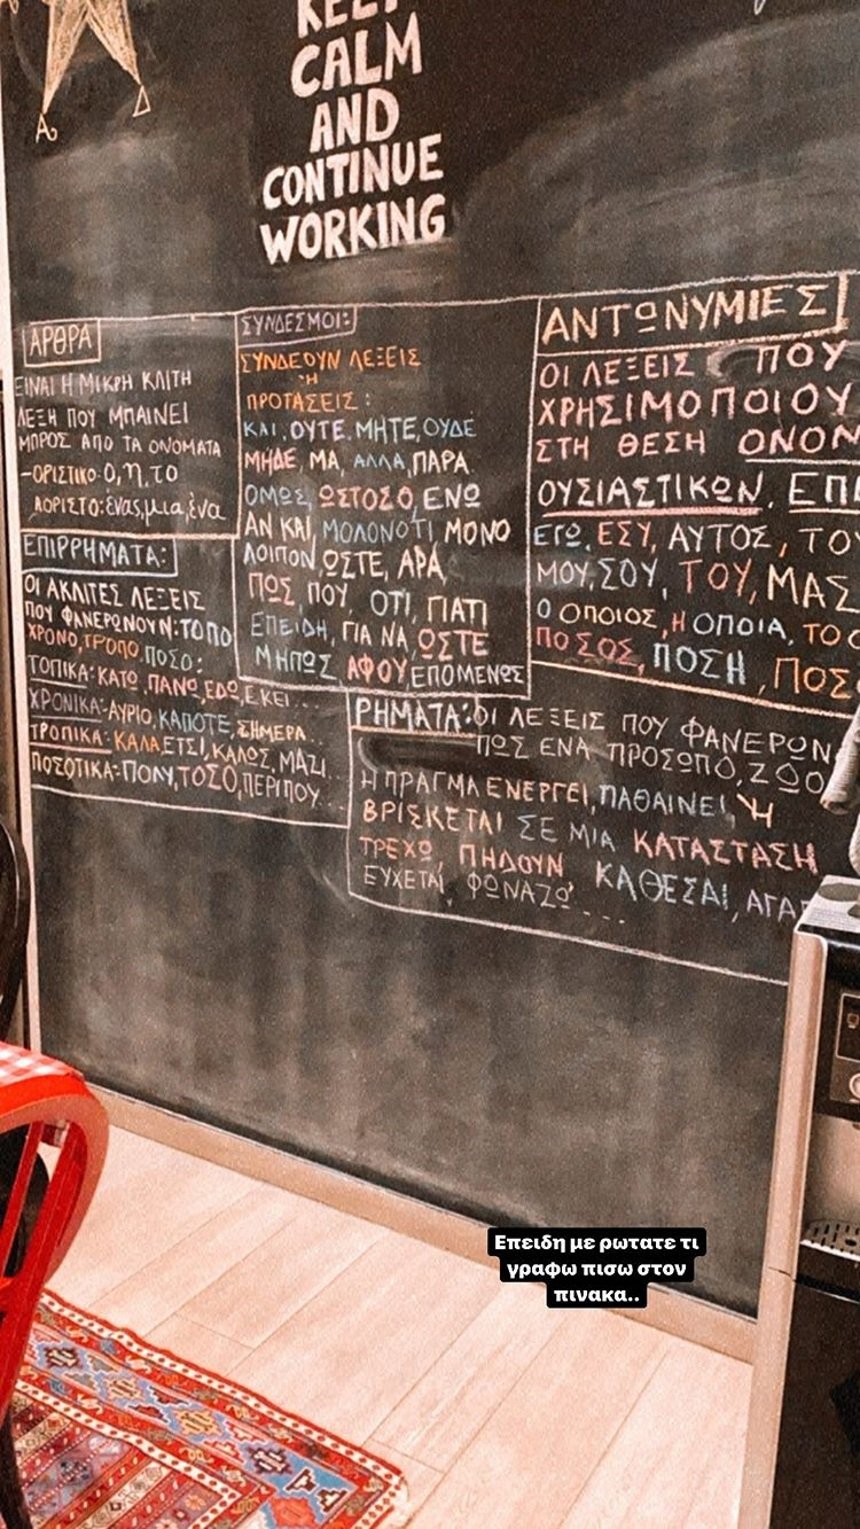 KEEP
CALM
AND
CONTINUE
WORKING
ΑΡΘΡΑ
ΕΙΝΑΙ Η ΜΙΚΡΗ ΚΛΙΤΗ
ΛΕΞΗ ΠΟΥ ΜΠΑΙΝΕΙ
ΜΠΡΟΣ ΑΠΟ ΤΑ ΟΝΟΜΑΤΑ
-ΟΡΙΣΤΙΚΟ: Ο, η, το
ΑΟΡΙΣΤΟ: ένας, μια, ένα
ΕΠΙΡΡΗΜΑΤΑ:
ΟΙ ΑΚΛΙΤΕΣ ΛΕΞΕΙΣ
ΠΟΥ ΦΑΝΕΡΩΝΟΥΝ: ΤΟΠΟ
ΧΡΟΝΟ, ΤΡΟΠΟ, ΠΟΣΟ:
ΤΟΠΙΚΑ: ΚΑΤΩ, ΠΑΝΩ, ΕΔΩ, ΕΚΕΙ...
ΧΡΟΝΙΚΑ-ΑΥΡΙΟ, ΚΑΠΟΤΕ, ΣΗΜΕΡΑ..
ΤΡΟΠΙΚΑ: ΚΑΛΑ, ΕΤΣΙ, ΚΑΛΩΣ, ΜΑΖΙ..
ΠΟΣΟΤΙΚΑ: ΠΟΛΥ, ΤΟΣΟ, ΠΕΡΙΠΟΥ...
ΣΥΝΔΕΣΜΟΙ:
ΣΥΝΔΕΟΥΝ ΛΕΞΕΙΣ
Ή
ΠΡΟΤΑΣΕΙΣ:
ΚΑΙ, ΟΥΤΕ, ΜΗΤΕ, ΟΥΔΕ
ΜΗΔΕ, ΜΑ, ΑΛΛΑ, ΠΑΡΑ
ΟΜΩΣ, ΩΣΤΟΣΟ, ΕΝΩ
ΑΝ ΚΑΙ, ΜΟΛΟΝΟΤΙ, ΜΟΝΟ
ΛΟΙΠΟΝ, ΩΣΤΕ, ΑΡΑ,
ΠΩΣ, ΠΟΥ, ΟΤΙ, ΓΙΑΤΙ
ΕΠΕΙΔΗ, ΓΙΑ ΝΑ, ΩΣΤΕ
ΜΗΠΩΣ, ΑΦΟΥ, ΕΠΟΜΕΝΩΣ
ΑΝΤΩΝΥΜΙΕΣ
ΟΙ ΛΕΞΕΙΣ ΠΟΥ
ΧΡΗΣΙΜΟΠΟΙΟΥ
ΣΤΗ ΘΕΣΗ ΟΝΟΜ
ΟΥΣΙΑΣΤΙΚΩΝ, ΕΠΙ
ΕΓΩ, ΕΣΥ, ΑΥΤΟΣ, ΤΟΥ
ΜΟΥ, ΣΟΥ, ΤΟΥ, ΜΑΣ
Ο ΟΠΟΙΟΣ, Η ΟΠΟΙΑ, ΤΟ Ο
ΠΟΣΟΣ, ΠΟΣΗ, ΠΟΣ
ΡΗΜΑΤΑ: ΟΙ ΛΕΞΕΙΣ ΠΟΥ ΦΑΝΕΡΩΝ
ΠΩΣ ΕΝΑ ΠΡΟΣΩΠΟ, ΖΩΟ
Η ΠΡΑΓΜΑ ΕΝΕΡΓΕΙ, ΠΑΘΑΙΝΕΙ, Ή
ΒΡΙΣΚΕΤΑΙ ΣΕ ΜΙΑ ΚΑΤΑΣΤΑΣΗ
ΤΡΕΧΩ, ΠΗΔΟΥΝ ΚΑΘΕΣΑΙ, ΑΓΑΠ
ΕΥΧΕΤΑΙ, ΦΩΝΑΖΩ....
Επειδη με ρωτατε τι
γραφω πισω στον
πινακα..